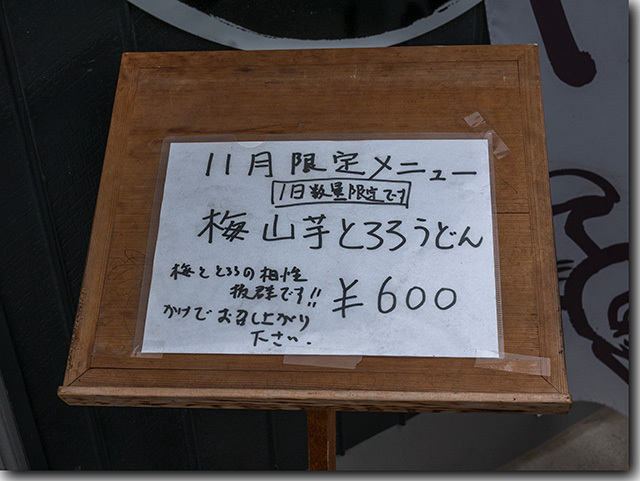 11月限定メニュー
1日数量限定です
梅山芋とろろうどん
梅ととろろの相性
抜群です!!
かけでお召し上がり
下さい.
¥600